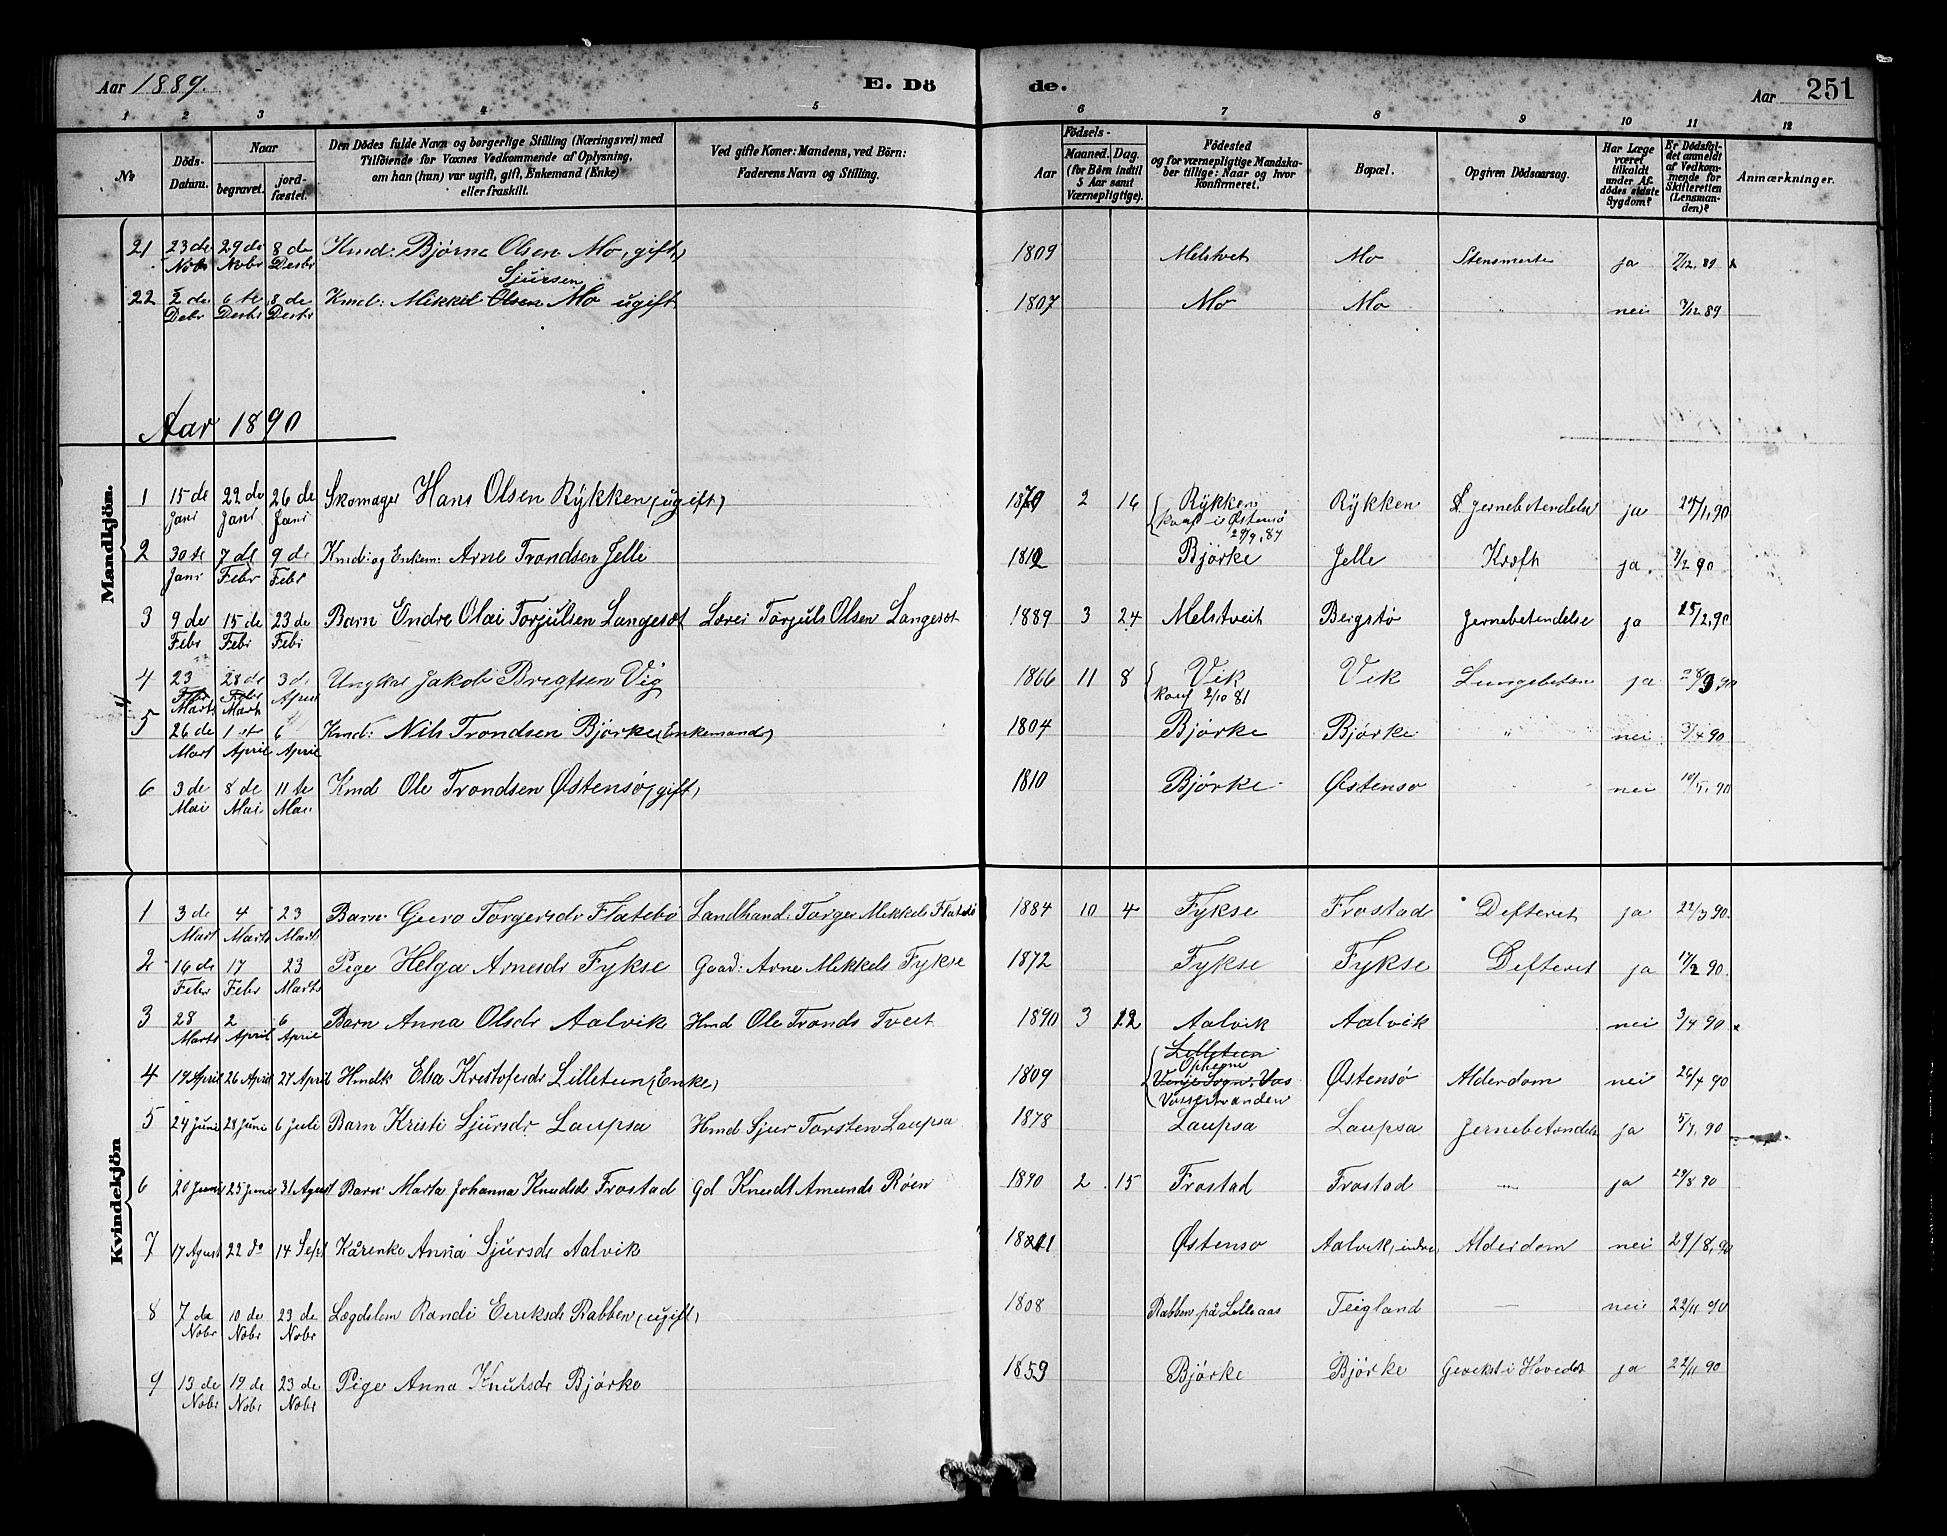 Aar 1889. E. Dö de. Aar 251
1 2 3 4 5 6 7 8 9 10 11 12
№
Döds-Datum.
Naar
begravet.
jord-fæstet.
Den Dödes fulde Navn og borgerlige Stilling (Næringsvei) med
Tilföiende for Voxnes Vedkommende af Oplysning,
om han (hun) var ugift, gift, Enkemand (Enke)
eller fraskilt.
Ved gifte Koner: Mandens, ved Börn:
Faderens Navn og Stilling.
Födsels-
Aar
Maaned. Dag.
(for Börn indtil
5 Aar samt
Værnepligtige).
Födested
og for værnepligtige Mandska-
ber tillige: Naar og hvor
konfirmeret.
Bopæl.
Opgiven Dödsaarsag.
Har Læge
været
tilkaldt
under Af-
dödes sidste
Sygdom?
Er Dödsfal-
det anmeldt
af Vedkom-
mende for
Skifteretten
(Lensman-
den)?
Anmærkninger.
21 23 de Nobr 29 de Nobr 8 de Desbr Kmd: Bjørne Olsen Mo, gift) 1809 Melstvet Mo Stensmerte ja 7/12.89
Sjursen
22 2 de Debr 6 te Desbr 8 de Desbr Kmd: Mikkel Olsen Mo ugift 1807 Mo Mo " nei 7/12 89
Aar 1890
Mandkjön.
1 15 de Janr 22 de Janr 26 de Janr Skomager Hans Olsen Rykken (ugift) 1870 2 16 Rykken Rykken jernebetendelse ja 24/1.90
konf i Østensö
2 30 te Janr 7 de Febr 9 de Febr Kmd: og Enkem: Arne Trondsen Jelle 1812 Bjørke Jelle Kræft ja 9/2 90
3 9 de Febr 15 de Febr 23 de Febr Barn Endre Olai Torjulsen Langesæt Lærer Torjuls Olsen Langesæt 1889 3 24 Melstveit Bergstø Jernebetendelse ja 25/2.90
4 23 Febr Marts 28 de Febr Marts 3 de April Ungkar Jakob Brigtsen Vig 1866 11 8 Vik Vik Lungebeten ja 28/3 90
konf 2/10 81
5 26 de Mart 1 st April 6 April Kmd: Nils Trondsen Bjørke (Enkemand) 1804 Bjørke Bjørke " nei 3/4 90
6 3 de Mai 8 de Mai 11 te Mai Kmd Ole Trondsen Østensø (gift) 1810 Bjørke Østensø nei 10/5.90
Kvindekjön
1 3 de Mart 4 Marts 23 Mart Barn Guro Torgersdr Flatebö Landhand: Torger Mikkels Flatebö 1884 10 4 Fykse Frostad Defteret ja 22/3 90.
2 16 de Febr 17 Febr 23 Marts Pige Helga Arnesdr Fykse Gaad: Arne Mikkels Fykse 1872 Fykse Fykse Defteret ja 17/2 90.
3 28 Marts 2 April 6 April Barn Anna Olsdr Aalvik Hmd Ole Tronds Tveit 1890 3 22 Aalvik Aalvik nei 3/4 90
4 19 April 26 April 27 April Hmdk Elsa Kristofersdr Lilletun (Enke) 1809 Lilletun Opheim Vinje Sogn. Vos Vossestranden Østensø Alderdom nei 26/4 90
5 24 Juni 28 Juni 6 Juli Barn Kristi Sjursdr Laupsa Hmd Sjur Torsten Laupsa 1878 Laupsa Laupsa Jernebetendels ja 5/7.90
6 20 Juni 25 Juni 31 Agust Barn Marta Johanna Knudsdr Frostad Gd Knudt Amunds Røen 1890 2 15 Frostad Frostad — ja 29/8 90
7 17 Agust 22 do 14 Sept Kårenke Anna Sjursdr Aalvik Østensø Aalvik, indre Alderdom nei 29/8.90
8 7 de Nobr 10 de Nobr 23 de Nobr Lægdslem Randi Eeriksdr Rabben (ugift) 1808 Rabben på Lilleaas Teigland — nei 22/11 90
9 13 de Nobr 19 de Nobr 23 de Nobr Pige Anna Knutsdr Bjørke 1859 Bjørke Bjørke Gevekst i Hovedet ja 22/11 90